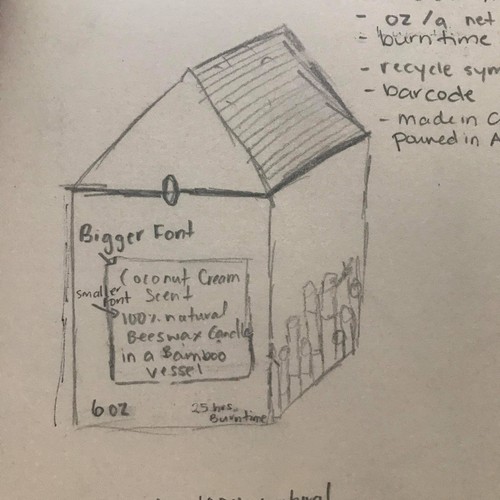 - oz /g net
- burntime
- recycle sym
- barcode
- made in C
poured in A
Bigger Font
Coconut Cream
Scent
smaller
font
100% natural
Beeswax Candle
in a Bamboo
vessel
6 oz
25 hrs.
Burntime